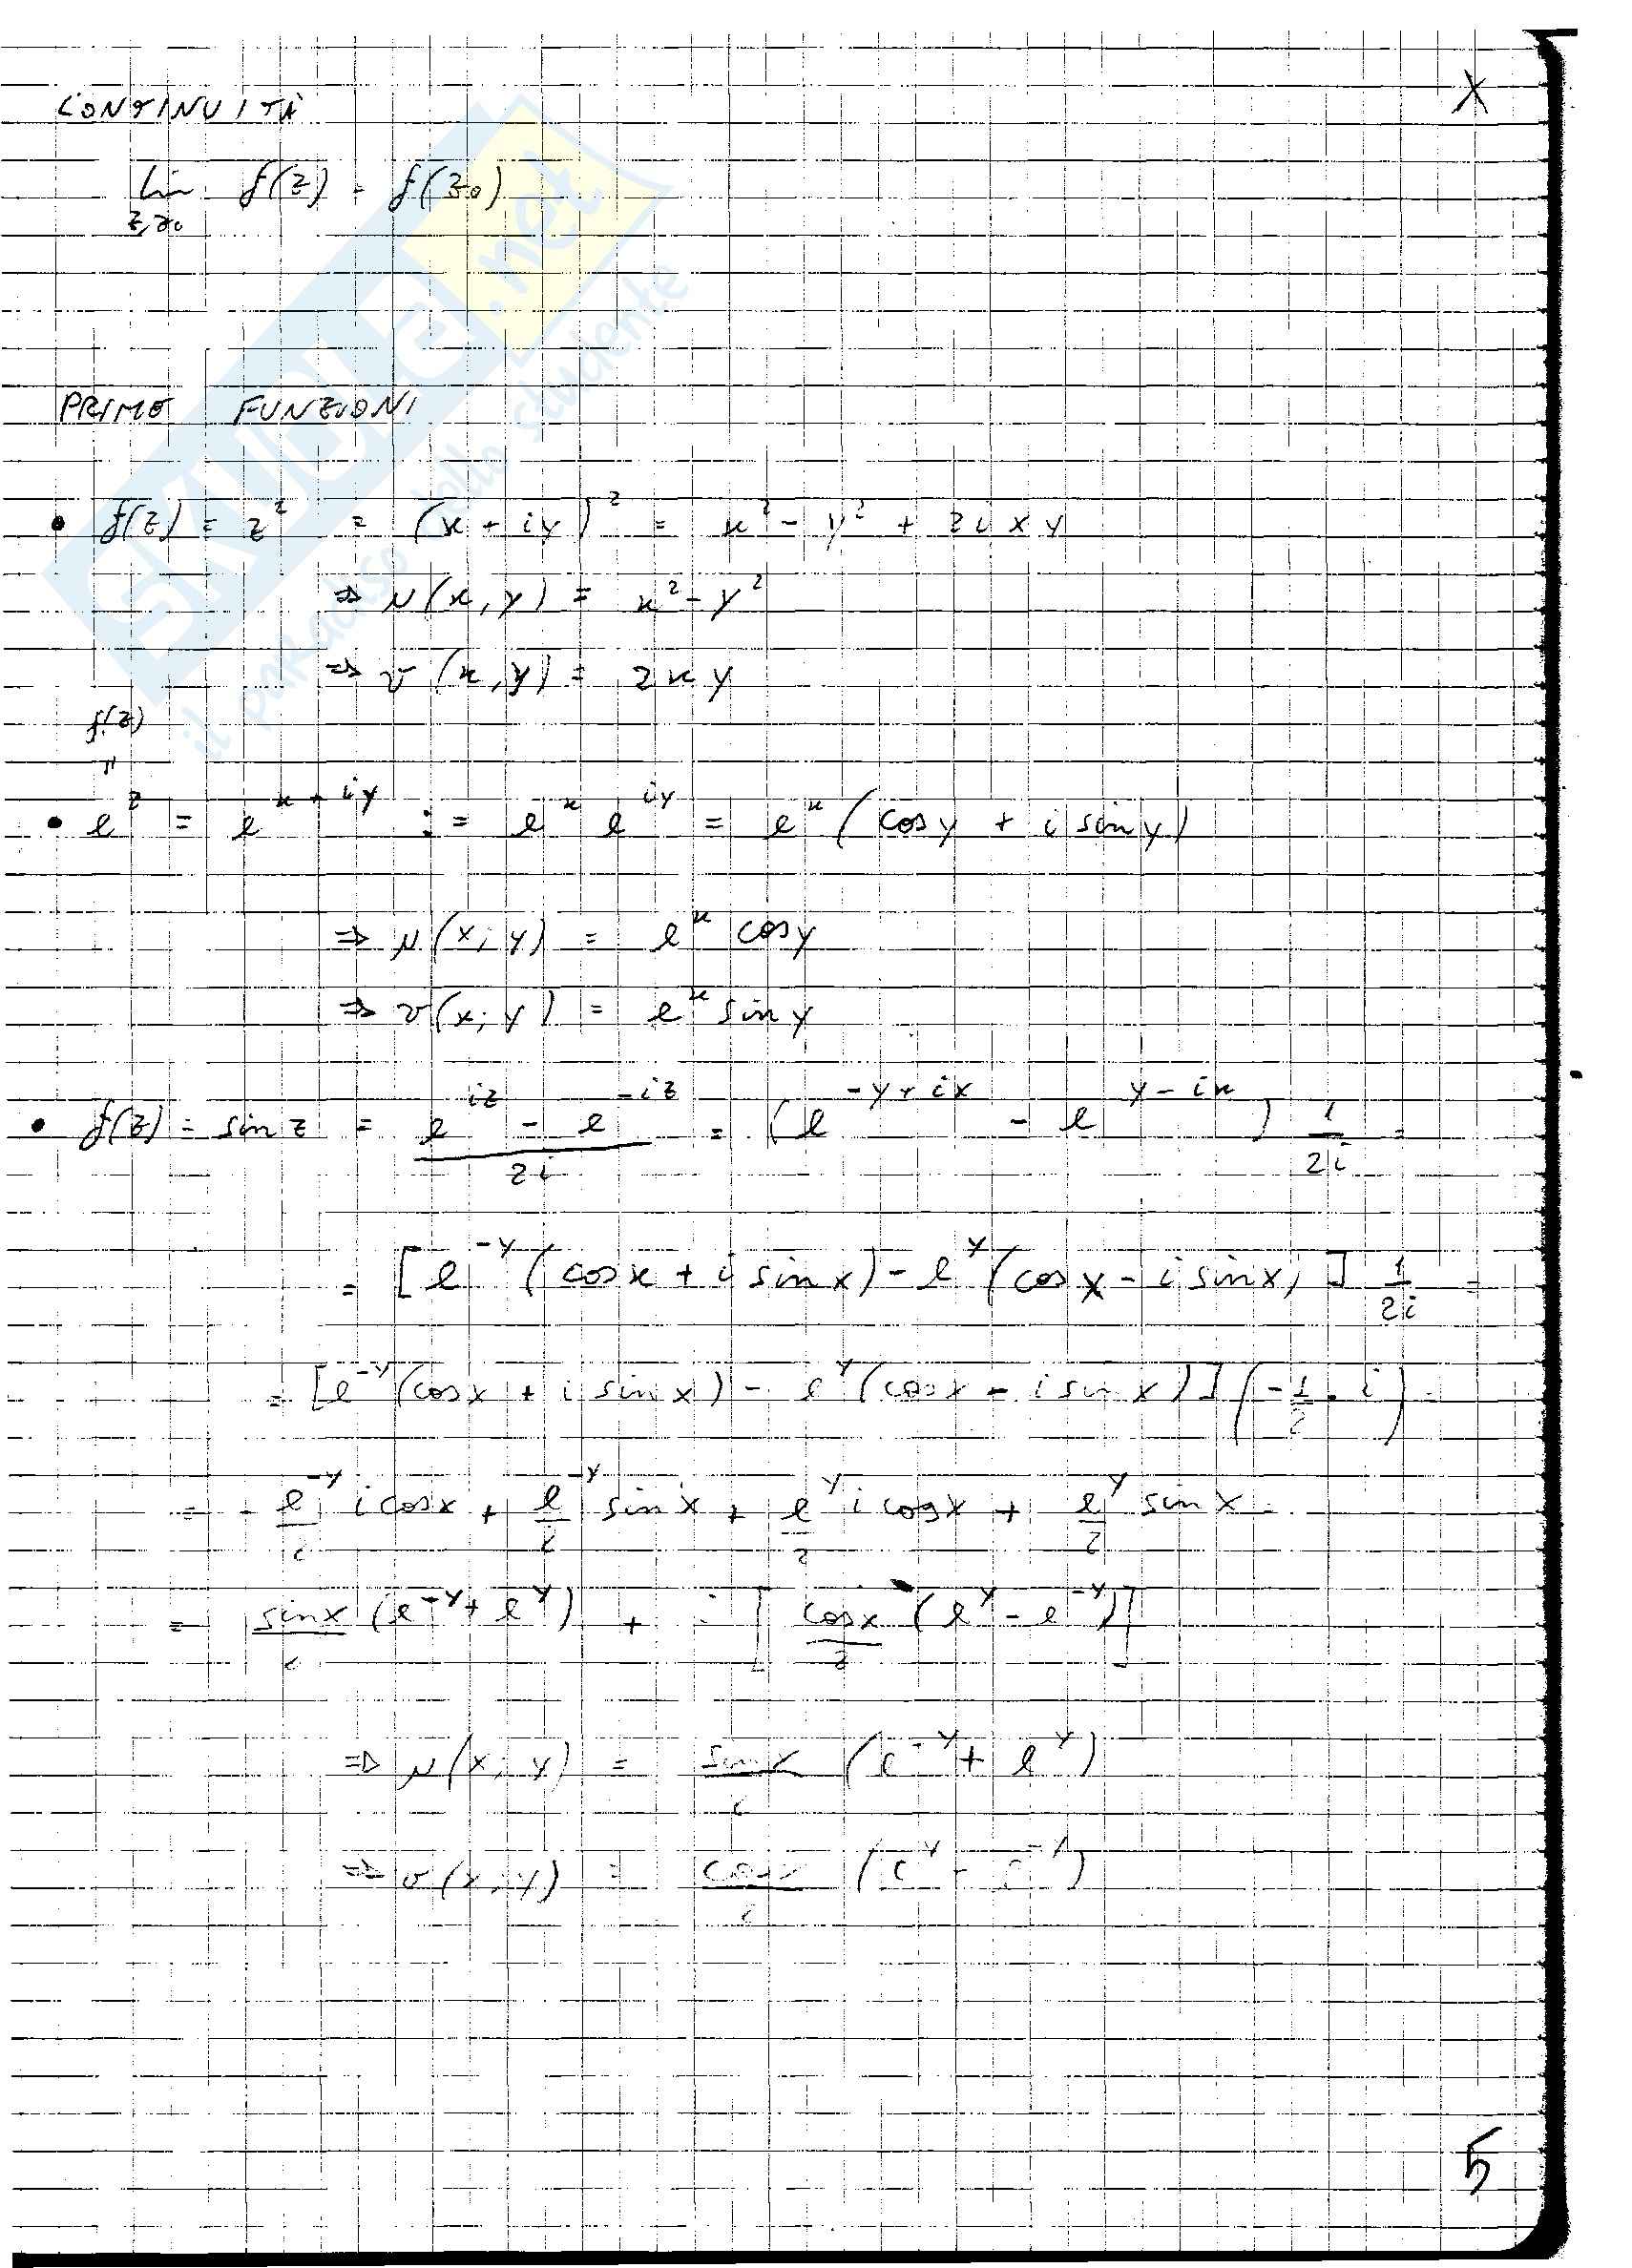 CONTINUITÀ
X
lim f(z) = f(z₀)
z→z₀
PRIME FUNZIONI
• f(z) = z² = (x + iy)² = x² - y² + 2ixy
⇒ u(x,y) = x² - y²
⇒ v(x,y) = 2xy
f(z)
"
• e^z = e^(x+iy) := e^x e^(iy) = e^x (cosy + i siny)
⇒ u(x;y) = e^x cosy
⇒ v(x;y) = e^x siny
• f(z) = sin z = (e^(iz) - e^(-iz))/2i = (e^(-y+ix) - e^(y-ix)) 1/2i =
= [e^(-y) (cosx + i sinx) - e^y (cosx - i sinx)] 1/2i =
= [e^(-y) (cosx + i sinx) - e^y (cosx - i sinx)] (-1/2 · i) =
= - e^(-y)/2 i cosx + e^(-y)/2 sinx + e^y/2 i cosx + e^y/2 sinx =
= sinx/2 (e^(-y) + e^y) + i [cosx/2 (e^y - e^(-y))]
⇒ u(x;y) = sinx/2 (e^(-y) + e^y)
⇒ v(x;y) = cosx/2 (e^y - e^(-y))
5
SKUOLA.net
il paradiso dello studente